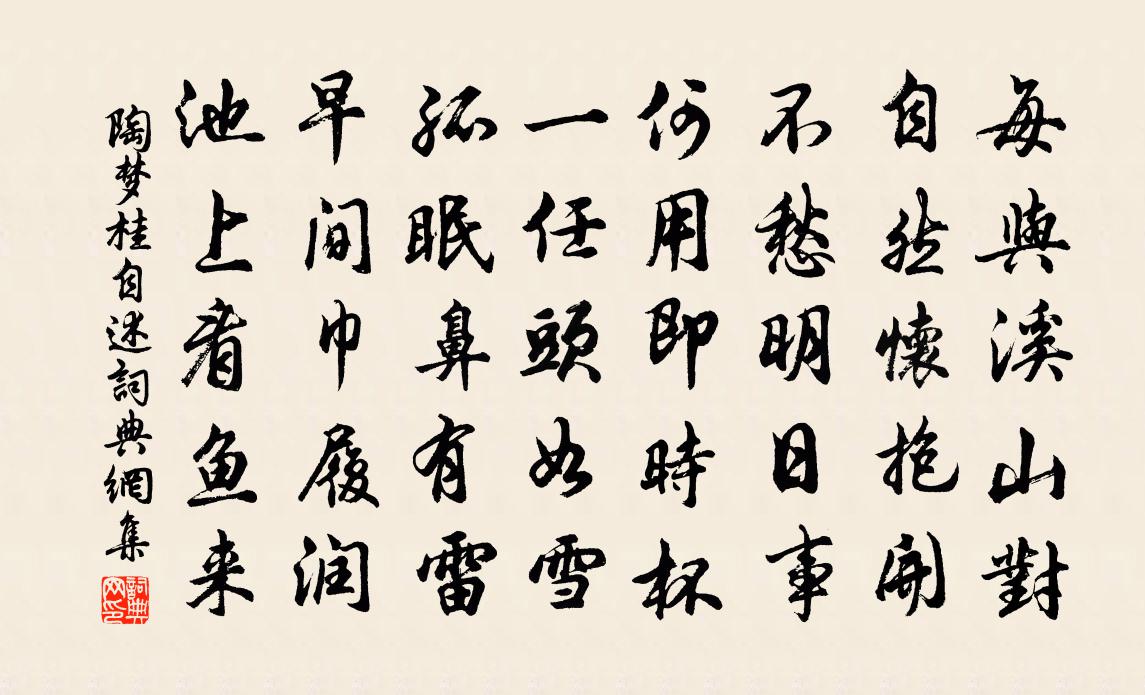 每與溪山對
自然懷抱開
不愁明日事
何用即時杯
一任頭如雪
孤眠鼻有雷
早間巾履润
池上看鱼来
陶梦桂自述詞典網集
詞典网印